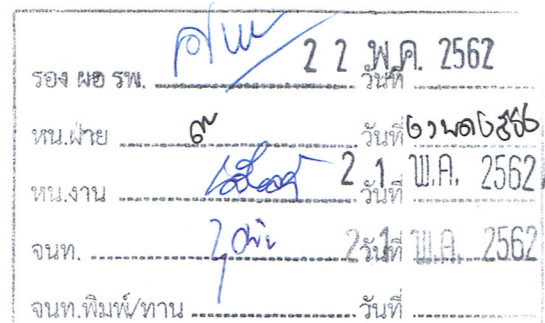 รอง ผอ รพ. วันที่ 22 พ.ค. 2562
หน.ฝ่าย วันที่
หน.งาน วันที่ 21 พ.ค. 2562
จนท. วันที่ 21 พ.ค. 2562
จนท.พิมพ์/ทาน วันที่